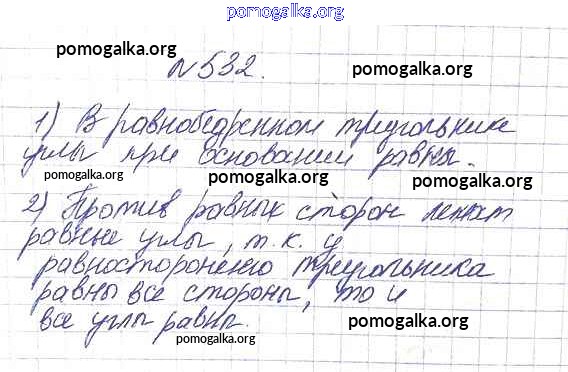 pomogalka.org
pomogalka.org
№532.
pomogalka.org
1) В равнобедренном треугольнике
углы при основании равны.
pomogalka.org
pomogalka.org
pomogalka.org
2) Против равных сторон лежат
равные углы, т.к. у
равностороннего треугольника
равны все стороны, то и
все углы равны.
pomogalka.org
pomogalka.org